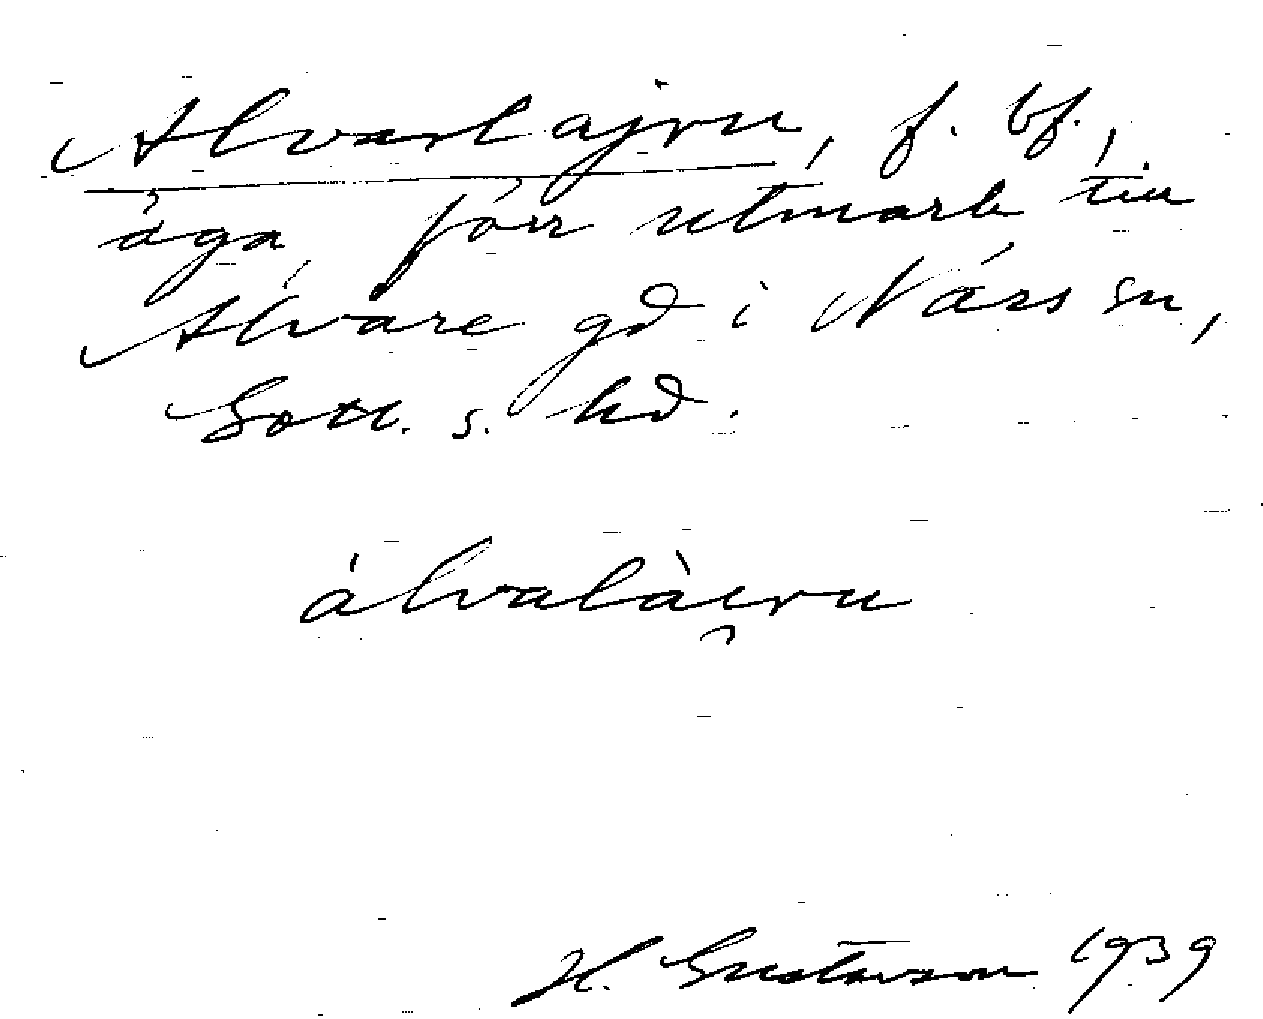 Alvarlajvu, f. bf.,
äga, förr utmark till
Alvare gd i Närs sn,
Gotl. s. hd.
álvalàivu
H. Gustavson 1939